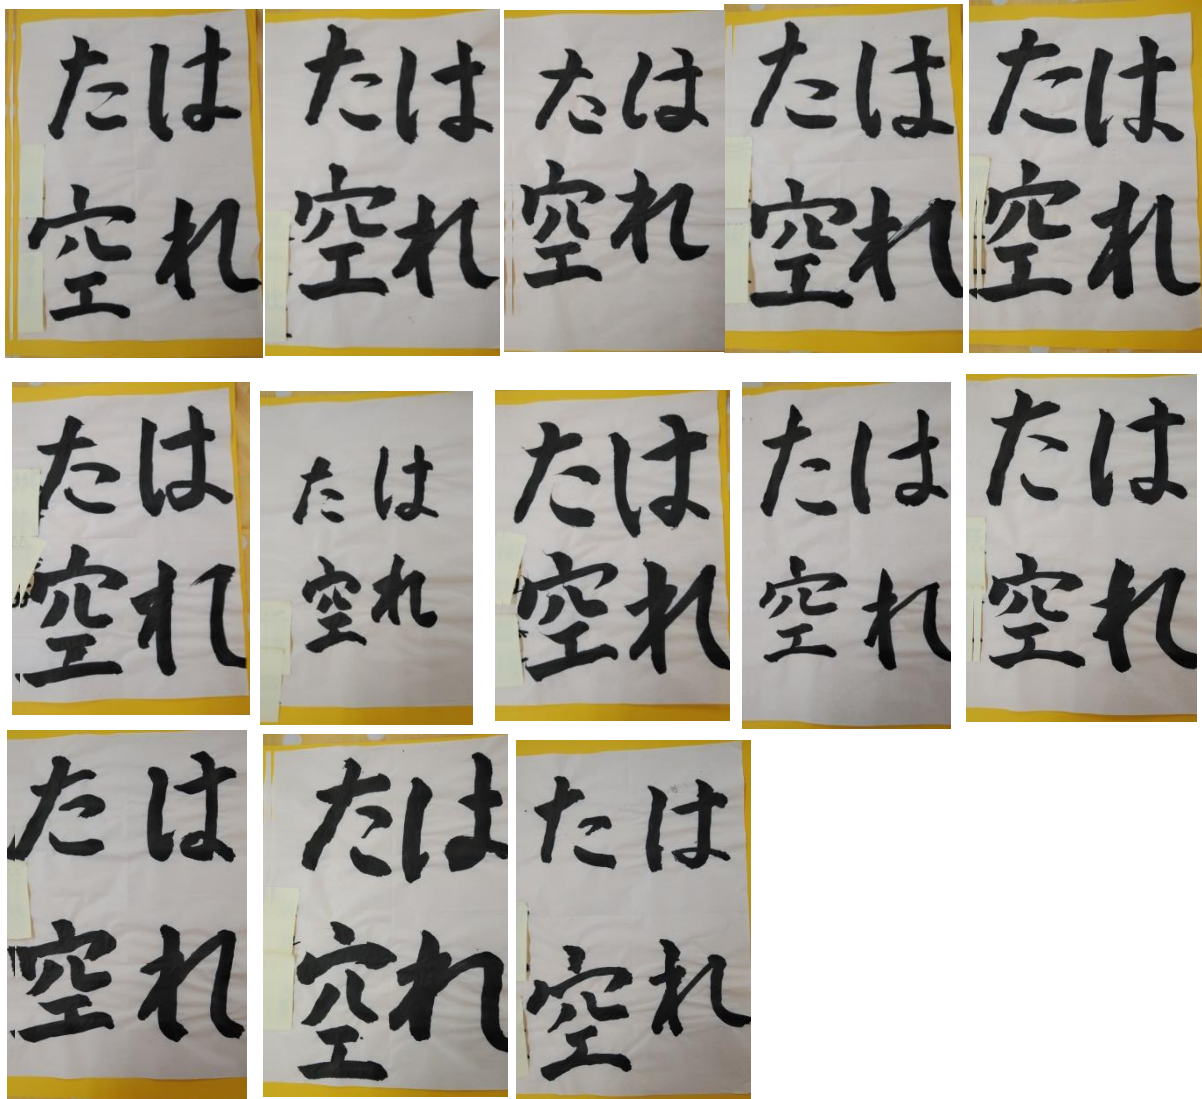 はれ
た空
はれ
た空
はれ
た空
はれ
た空
はれ
た空
はれ
た空
はれ
た空
はれ
た空
はれ
た空
はれ
た空
はれ
た空
はれ
た空
はれ
た空